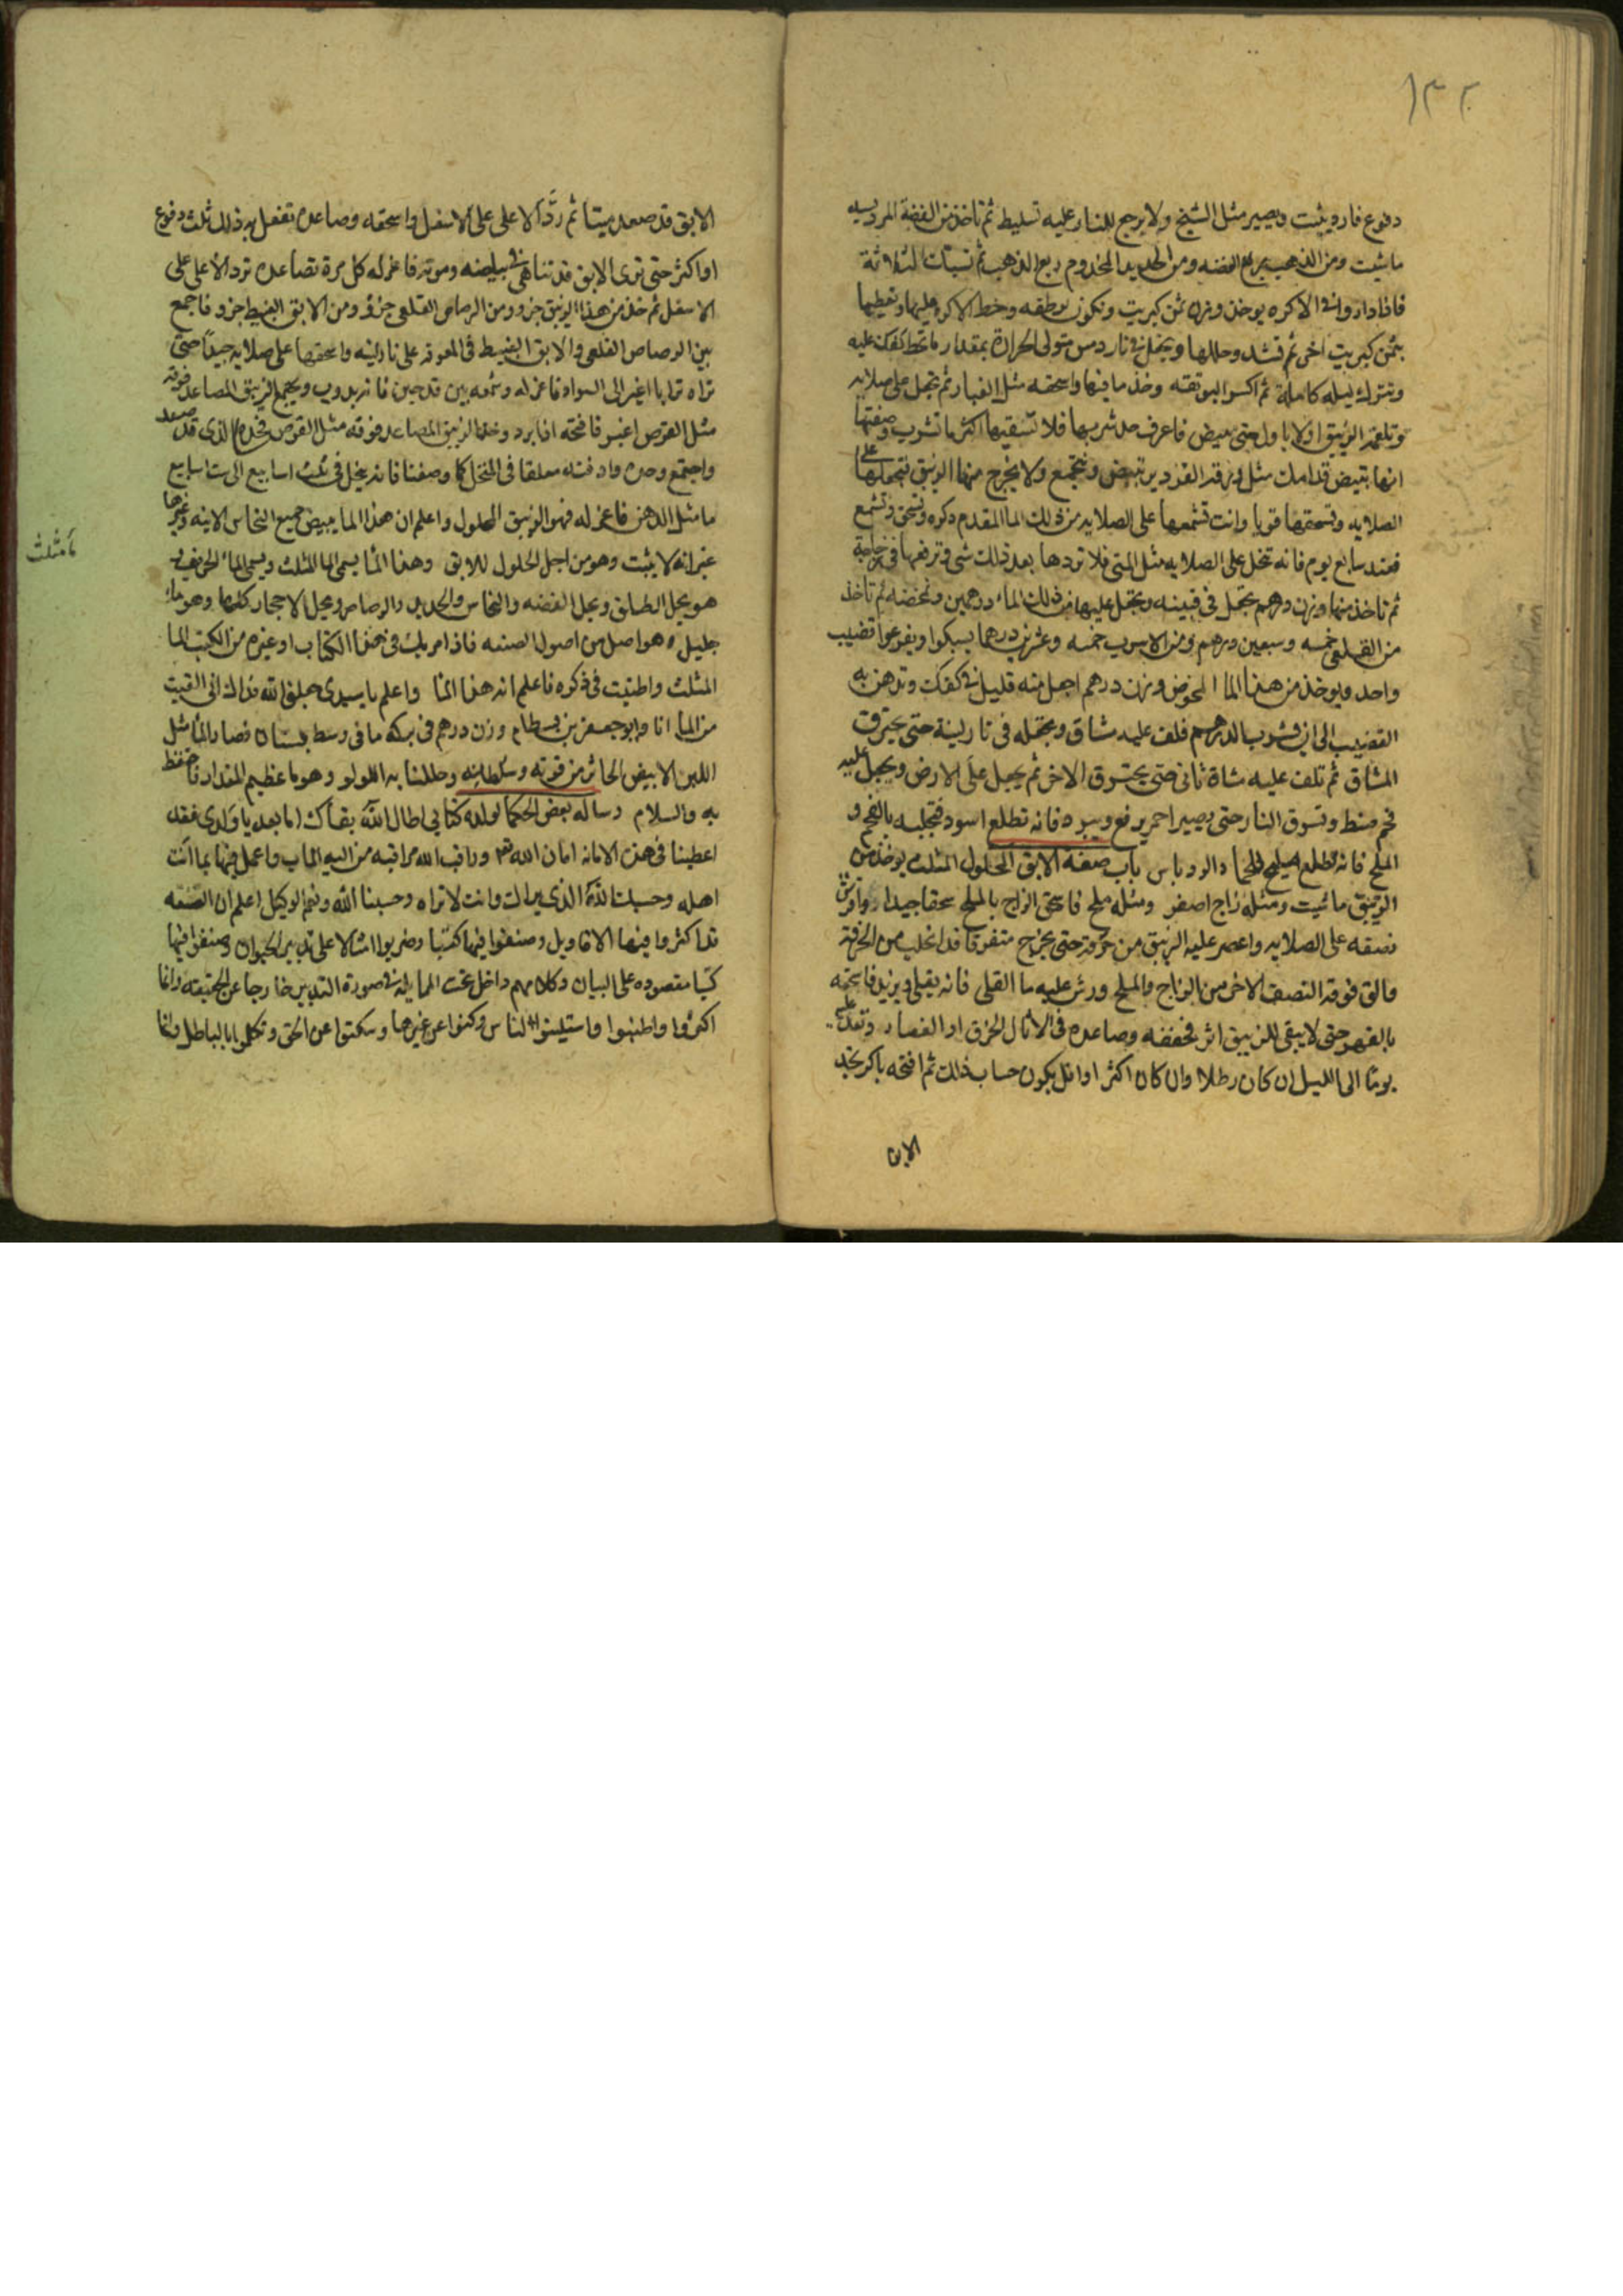 ١٣٢
دفوع فارويثبت ويصير مثل الشبخ ولا يرجع للنار عليه تسليط ثم تاخذ من الفضة
ما شيت ومن الذهب بربع الفضه ومن الحديد المخدوم ربع الذهب ثم
فاذا داروا في الاكره يوخذ وزن ثمن كبريت وتكون
بثمن كبريت اخر ثم تشد وحللها ويجعل في نار دمس متولى الحرارة بمقدار ما تحط كفك عليه
وتترك ليله كاملة ثم اكسر البوتقه وخذ ما فيها واسحقه مثل الغبار ثم تجعل على صلايه
وتلقمه الزيبق اولا باول حتى يبيض فاعرف حد شربها فلا تسقيها اكثر ما تشرب وصفتها
انها تبيض قدامك مثل القزدير تبيض وتجتمع ولا يخرج منها الزيبق فتجعلها على
الصلايه وتسحقها قويا وانت تشمعها على الصلايه من ذلك الما المقدم ذكره وتسحق وتشمع
فعند سابع يوم فانه تنحل على الصلايه مثل المني فلا تردها بعد ذلك شي وترفعها في زجاجة
ثم تاخذ منها وزن درهم يجعل في قنينه ويجعل عليها من ذلك الماء درهمين وتخضه ثم تاخذ
من القلعي خمسه وسبعين درهم ومن الاسرب خمسه وعشرين درهما يسبكوا ويفرغوا قضيب
واحد ويوخذ من هذا الما المخوض وزن درهم اجعل منه قليل في كفك وتدهن به
القضيب الى ان يشرب الدرهم فلف عليه مشاق ويجعله في نار لينة حتى يحترق
المشاق ثم تلف عليه مشاة ثاني حتى يحترق الاخر ثم يجعل على الارض ويجعل عليه
فحم منط وتسوق النار حتى يصير احمر يرفع ويبرد فانه تطلع اسود فتجليه بالفحم و
الملح فانه يطلع والروباس باب صفة الابق المحلول المثلث يوخذ من
الزيبق ما شيت ومثله زاج اصفر ومثله ملح فاسحق الزاج بالملح سحقا جيدا وافرش
نصفه على الصلايه واعصر عليه الزيبق من خرقة حتى يخرج متفرقا قد انخلب من الخرقة
والق فوقه النصف الاخر من الزاج والملح ورش عليه ما القلي فانه يقلي ويزيد فاسحقه
بالقهر حتى لا يبقى للزيبق اثر فجففه وصاعده في الاثال الخزف او الفصار وتقد عليه
يوما الى الليل ان كان رطلا وان كان اكثر او اقل يكون حساب ذلك ثم افتحه باكر تجد
الابق
الابق قد صعد ميتا ثم رد الاعلى على الاسفل واسحقه وصاعده تفعل به ذلك ثلث دفوع
او اكثر حتى ترى الابق قد تناهى في بياضه وموته فاعزله كل مرة تصاعده ترد الاعلى على
الاسفل ثم خذ من هذا الزيبق جزو ومن الرصاص القلعي جزو ومن الابق العبيط جزو فاجمع
بين الرصاص القلعي والابق العبيط في المغرفه على نار لينه واسحقها على صلايه جيدا حتى
تراه ترابا اغبر الى السواد فاعزله وشمعه بين قدحين فانه يذوب ويجمع الزيبق المصاعد فوقه
مثل القرص اغبر فافتحه اذا برد وخذ الزيبق المصاعد فوقه مثل القرص الذي قد صعد
واجتمع وحده وادفنه معلقا في المنحل كما وصفنا فانه ينحل في ثلث اسابيع الى ست اسابيع
ما مثل الدهن فاعزله فهو الزيبق المحلول واعلم ان هذا الما يبيض جميع النحاس الاينه وغيرها
غير انه لا يثبت وهو من اجل الحلول للابق وهذا الما يسمى الما المثلث ويسمى الماء الحريف
هو يحل الطلق ويحل الفضه والنحاس والحديد والرصاص ويحل الاحجار كلها وهو ماء
جليل وهو اصل من اصول الصنعه فاذا مر بك في هذا الكتاب او غيره من الكتب الما
المثلث واطنبت في ذكره فاعلم انه هذا الما واعلم يا سيدي جعلني الله فداك اني القيت
من الما انا وابو جعفر بن بسطام وزن درهم في بركه ما في وسط بستان فصار الما مثل
اللبن الابيض الخاثر من قوته وسلطانه وحللنا به اللولو وهو ما عظيم المقدار فاحتفظ
به والسلام رسالة بعض الحكما لولده كتابي اطال الله بقاك اما بعد يا ولدي فقد
اعطيتنا في هذه الامانه امان الله وراقب الله مراقبه من اليه الماب واعمل فيها بما انت
اهله وحسبك الله الذي يراك وانت لا تراه وحسبنا الله ونعم الوكيل اعلم ان الصنعه
قد اكثروا فيها الاقاويل وصنفوا فيها كتبا وضربوا امثالا على تدبير الحيوان وصنفوا فيها
كتبا مقصوده على البيان وكلامهم داخل تحت المماثله في صورة التدبير خارجا عن الحقيقه وانما
اكثروا واطنبوا للناس وكنوا عن غيرها وسكتوا عن الحق وتكلموا بالباطل وانما
ما مثلث